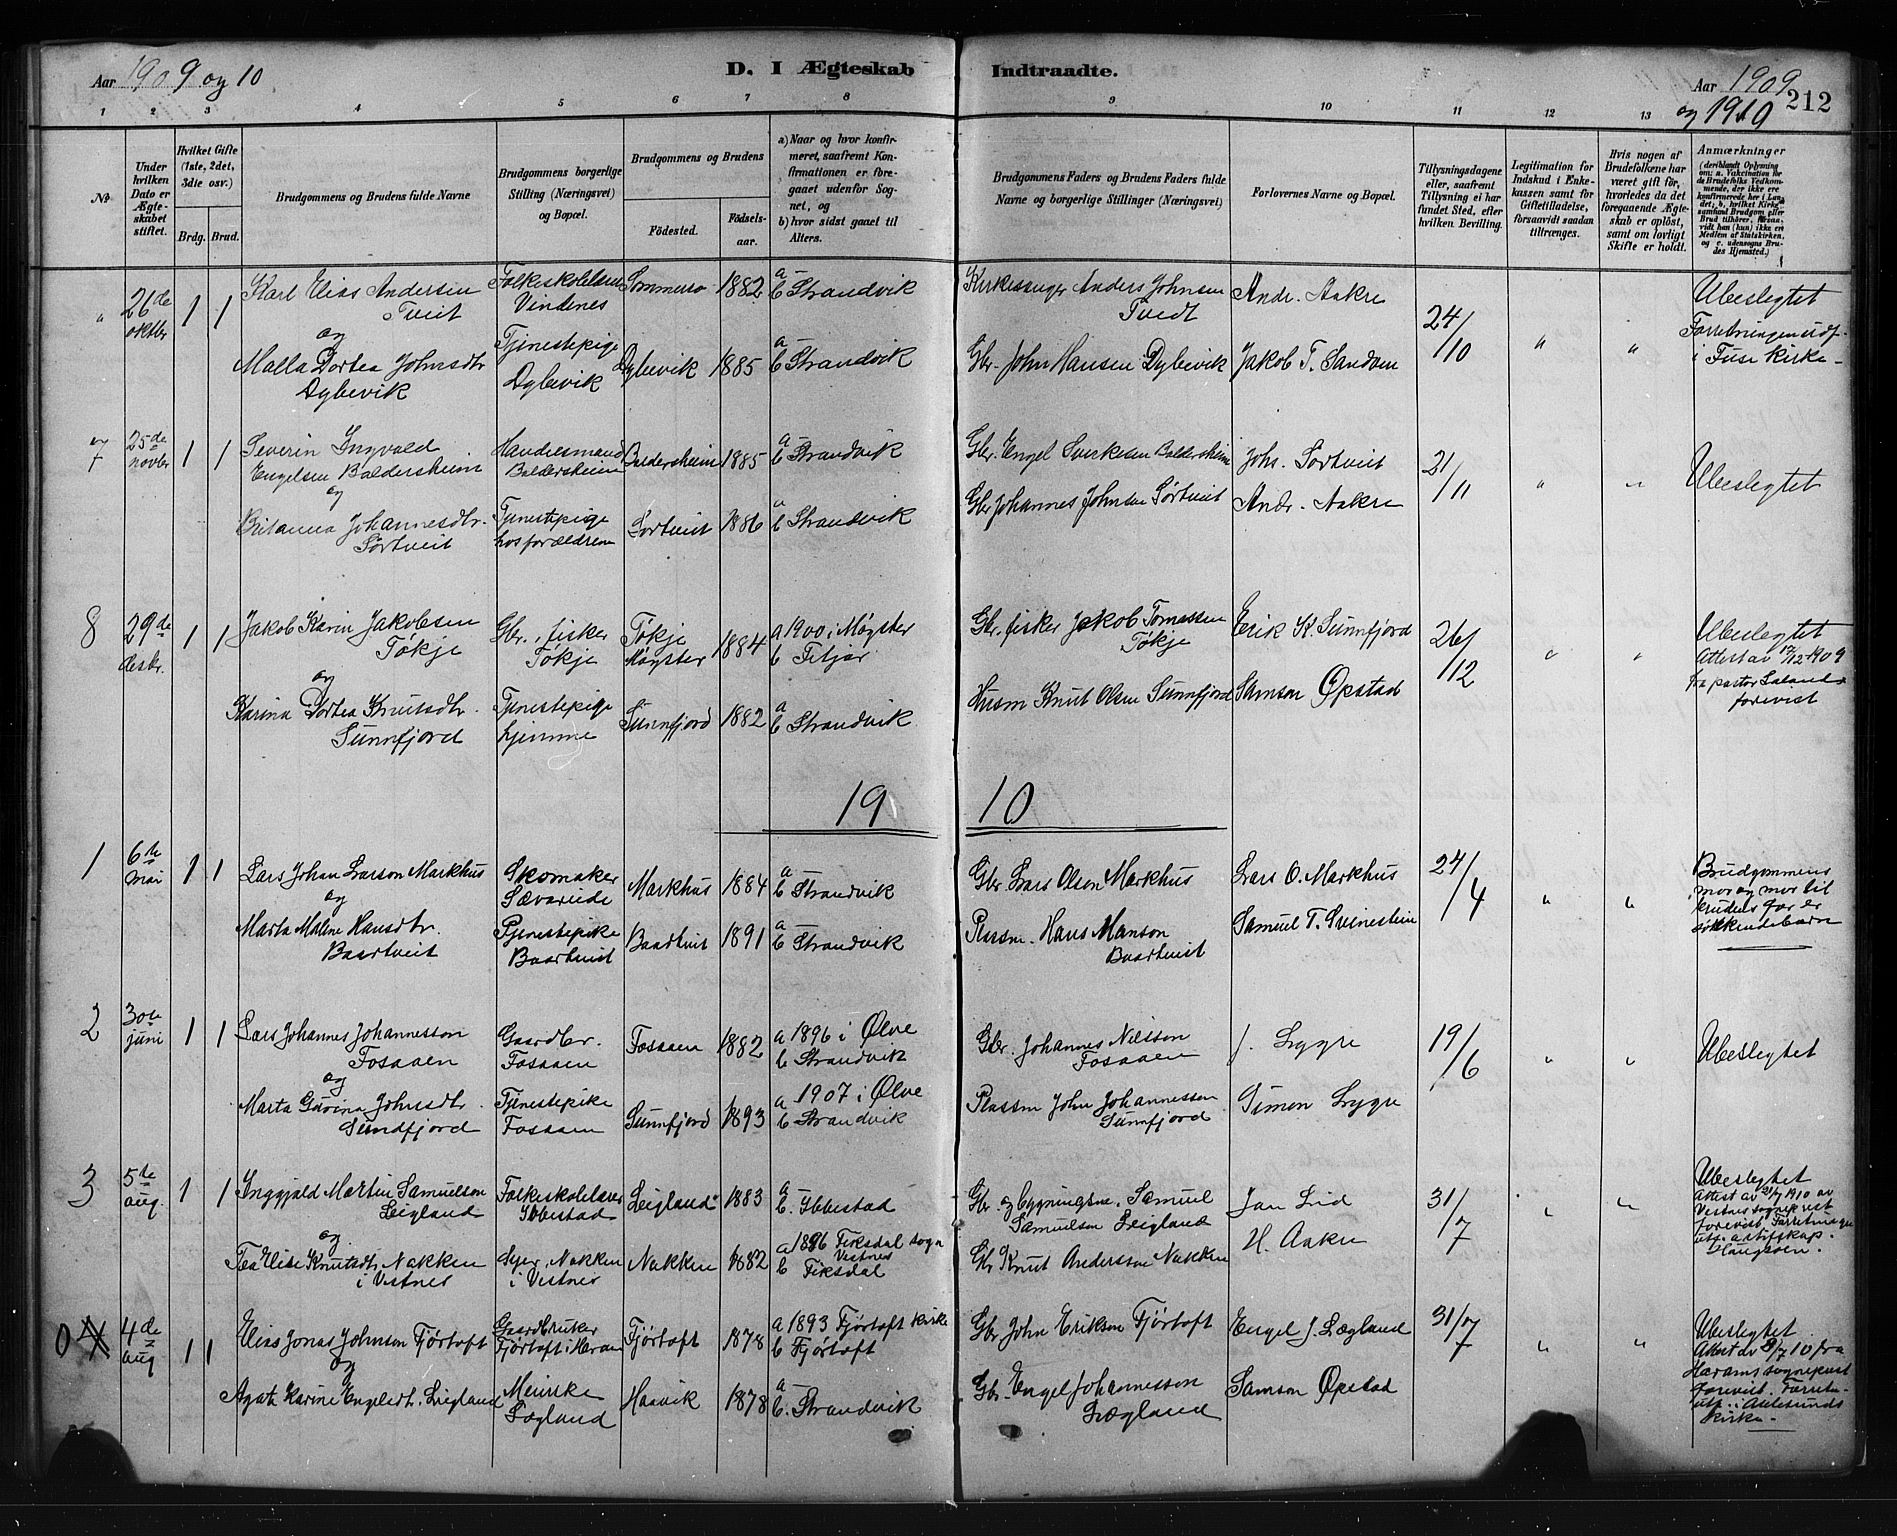 Aar 1909 og 10
D. I Ægteskab
Indtraadte.
Aar 1909
og 1910
212
1 2 3 4 5 6 7 8 9 10 11 12 13
№
Under hvilken Dato er Ægteskabet stiftet.
Hvilket Gifte (1ste, 2det, 3die osv.)
Brdg. Brud.
Brudgommens og Brudens fulde Navne
Brudgommens borgerlige Stilling (Næringsvei) og Bopæl.
Brudgommens og Brudens
Födested.
Födselsaar.
a) Naar og hvor konfirmeret, saafremt Konfirmationen er foregaaet udenfor Sognet, og
b) hvor sidst gaaet til Alters.
Brudgommens Faders og Brudens Faders fulde Navne og borgerlige Stillinger (Næringsvei)
Forlovernes Navne og Bopæl.
Tillysningsdagene eller, saafremt Tillysning ei har fundet Sted, efter hvilken Bevilling.
Legitimation for Indskud i Enkekassen samt for Giftetilladelse, forsaavidt saadan tiltrænges.
Hvis nogen af Brudefolkene har været gift för, hvorledes da det foregaaende Ægteskab er oplöst, samt om lovligt Skifte er holdt.
Anmærkninger
" 26de oktbr 1 1 Karl Elias Andersen Tveit
Vindenes Sommersø 1882 a — b Strandvik
Kirkesanger Anders Johnsen Tvedt
Andr. Aakre 24/10 " " Ubeslegtet
og
Malla Dortea Johnsdtr Dybevik
Tjenestepige Dybevik Dybevik 1885 a — b Strandvik
Gbr. John Hansen Dybevik
Jakob T. Sandven
i Fuse kirke
7 25de novbr 1 1 Severin Ingvald Engelsen Baldersheim
Baldersheim Baldersheim 1885 a — b Strandvik
Gbr. Engel Baldersheim
Johs. Sørtveit 21/11 " " Ubeslegtet
og
Britanna Johannesdtr. Sørtveit
Tjenestepige hos forældrene Sørtveit 1886 a b Strandvik
Gbr Johannes Johnsen Sørtveit
Andr. Aakre
8 29de desbr. 1 1 Jakob Karin Jakobsen Tøkje
Gbr., fisker Tøkje Tøkje Møgster 1884 a 1900 i Møgster b Fitjar
Gbr. fisker Jakob Tomassen Tøkje
Erik K. Sunnfjord 26/12 " " Ubeslegtet
Attest av 17/12 1909 fra pastor forevist
og
Karina Dortea Knutsdtr. Sunnfjord
Tjenestepige hjemme Sunnfjord 1882 a b Strandvik
Husm Knut Olsen Sunnfjord
Samson Øpstad
1910
1 6te mai 1 1 Lars Johan Larson Markhus
Skomaker Sævareide Markhus 1884 a b Strandvik
Gbr Lars Olson Markhus
Lars O. Markhus 24/4 " " Brudgommens mor og mor til brudens far er søskendebarn
og
Marta Malene Hansdtr. Baartveit
Tjenestepike Baartveit Baadtveit 1891 a — b Strandvik
Plassm. Hans Manson Baartveit
Samuel T. Svinestein
2 30te juni 1 1 Lars Johannes Johannesson Fossaaen
Gaardbr. Fossaaen Fossaaen 1882 a 1896 i Ølve b Strandvik
Gbr. Johannes Nilsson Fossaaen
J. Lygre 19/6 " " Ubeslegtet
og
Marta Gurina Johnsdtr. Sundfjord
Tjenestepike Fossaaen Sunnfjord 1893 a 1907 i Ølve b Strandvik
Plassm John Johannesson Sunnfjord
Simon Lygre
3 5te aug. 1 1 Inggjald Martin Samuelson Leigland
Folkeskolelærer Ibbestad Leigland 1883 a b. Ibbestad
Gbr. og bygningsm. Samuel Samuelson Leigland
Jan Lid 31/7 " " Ubeslegtet
Attest av 21/7 1910 av Vestnes sogneprest forevist
Haugesen.
og
Tea Elise Knutsdtr Nakken i Vestnes
Nakken i Vestnes Nakken 1882 a 1896 Fiksdal sogn Vestnes b Fiksdal
Gbr Knut Anderssen Nakken
H. Aakre
04 4de aug 1 1 Elias Jonas Johnson Fjørtoft
Gaardbruker Fjørtoft i Haram Fjørtoft 1878 a 1893 Fjørtoft kirke b Fjørtoft
Gbr John Erikson Fjørtoft
Engel J. Lægland 31/7 " " Ubeslegtet
Attest av 8/7 10 fra Harams sogneprest forevist. Aalesunds kirke.
og
Agate Karine Engelsdtr. Leigland
Meierske Lægland Haavik 1878 a — b. Strandvik
Gbr. Engel Johannesson Lægland
Samson Øpstad